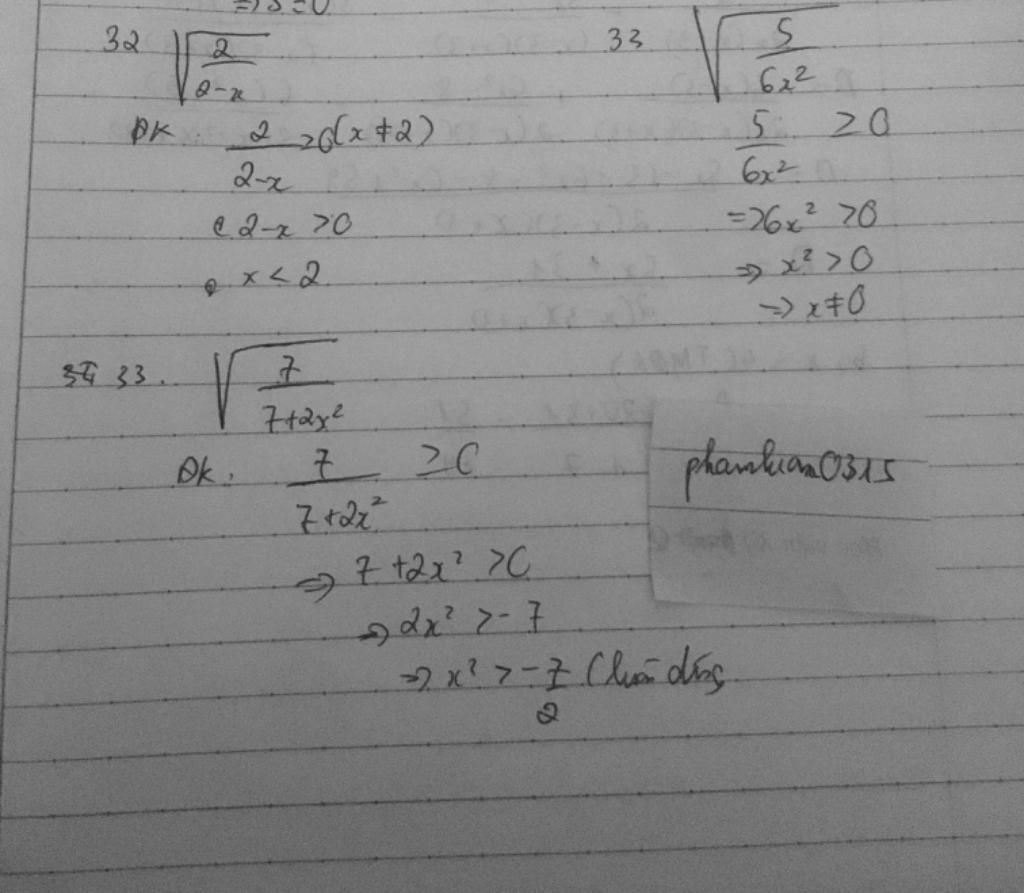 => S = 0
32 √(2/(2-x))
ĐK. 2/(2-x) ≥ 0 (x ≠ 2)
2-x > 0
x < 2
33 √(5/(6x²))
5/(6x²) ≥ 0
=> 6x² > 0
=> x² > 0
=> x ≠ 0
33. √(7/(7+2x²))
ĐK: 7/(7+2x²) ≥ 0
=> 7 + 2x² > 0
=> 2x² > -7
=> x² > -7/2 (luôn đúng
phamluan0315